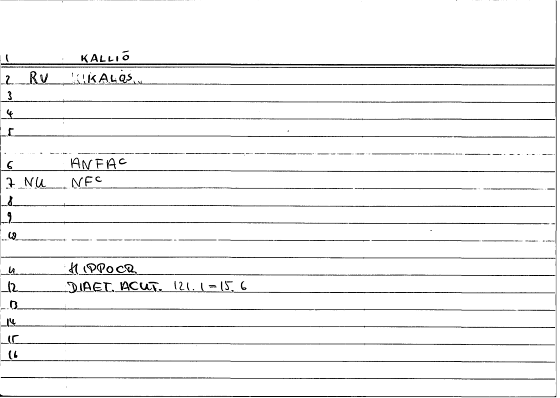 1 KALLIŌ
2 RV KIKALOS..
3
4
5
6 ANFAC
7 NU NFC
8
9
10
11 HIPPOCR
12 DIAET. ACUT. 121.1=15.6
13
14
15
16